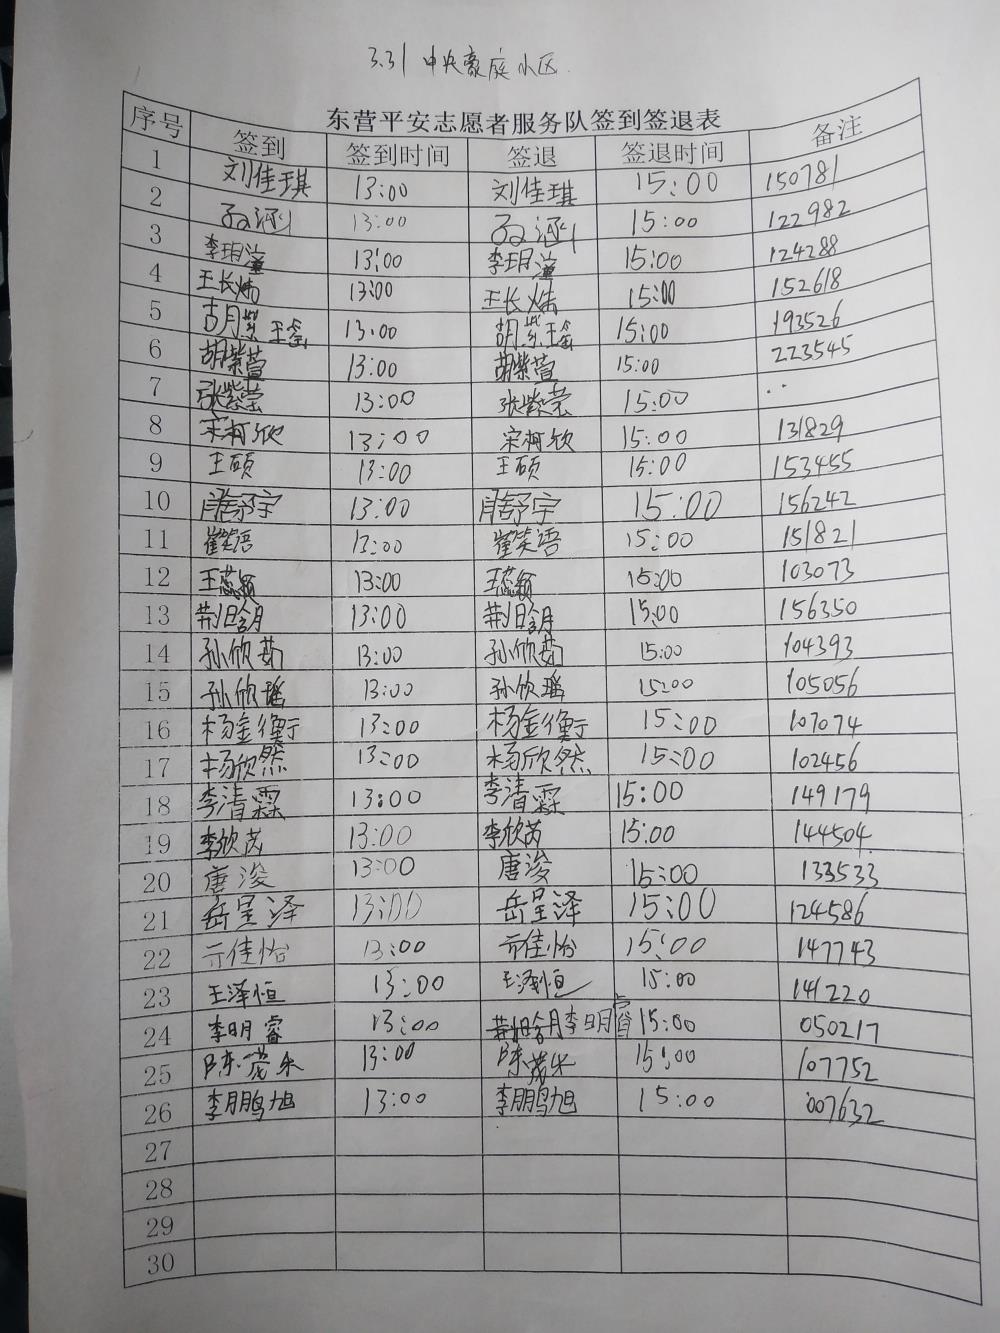 3.31 中央豪庭小区
东营平安志愿者服务队签到签退表
序号 签到 签到时间 签退 签退时间 备注
1 刘佳琪 13:00 刘佳琪 15:00 150781
2 13:00 15:00 122982
3 李玥潼 13:00 李玥潼 15:00 124288
4 王长炜 13:00 王长炜 15:00 152618
5 胡紫瑶 13:00 胡紫瑶 15:00 193526
6 胡紫萱 13:00 胡紫萱 15:00 223545
7 张紫莹 13:00 张紫莹 15:00
8 宋柯欣 13:00 宋柯欣 15:00 131829
9 王硕 13:00 王硕 15:00 153455
10 舒宇 13:00 舒宇 15:00 156242
11 崔笑语 13:00 崔笑语 15:00 151821
12 王蕊颖 13:00 王蕊颖 15:00 103073
13 荆晗月 13:00 荆晗月 15:00 156350
14 孙欣茹 13:00 孙欣茹 15:00 104393
15 孙欣瑶 13:00 孙欣瑶 15:00 105056
16 杨金衡 13:00 杨金衡 15:00 107074
17 杨欣然 13:00 杨欣然 15:00 102456
18 李清霖 13:00 李清霖 15:00 149179
19 李欣芮 13:00 李欣芮 15:00 144504
20 唐浚 13:00 唐浚 15:00 133533
21 岳呈泽 13:00 岳呈泽 15:00 124586
22 亓佳怡 13:00 亓佳怡 15:00 147743
23 王泽恒 13:00 王泽恒 15:00 141220
24 李明睿 13:00 李明睿 15:00 050217
25 陈茂乐 13:00 陈茂乐 15:00 107752
26 李鹏旭 13:00 李鹏旭 15:00 007632
27
28
29
30